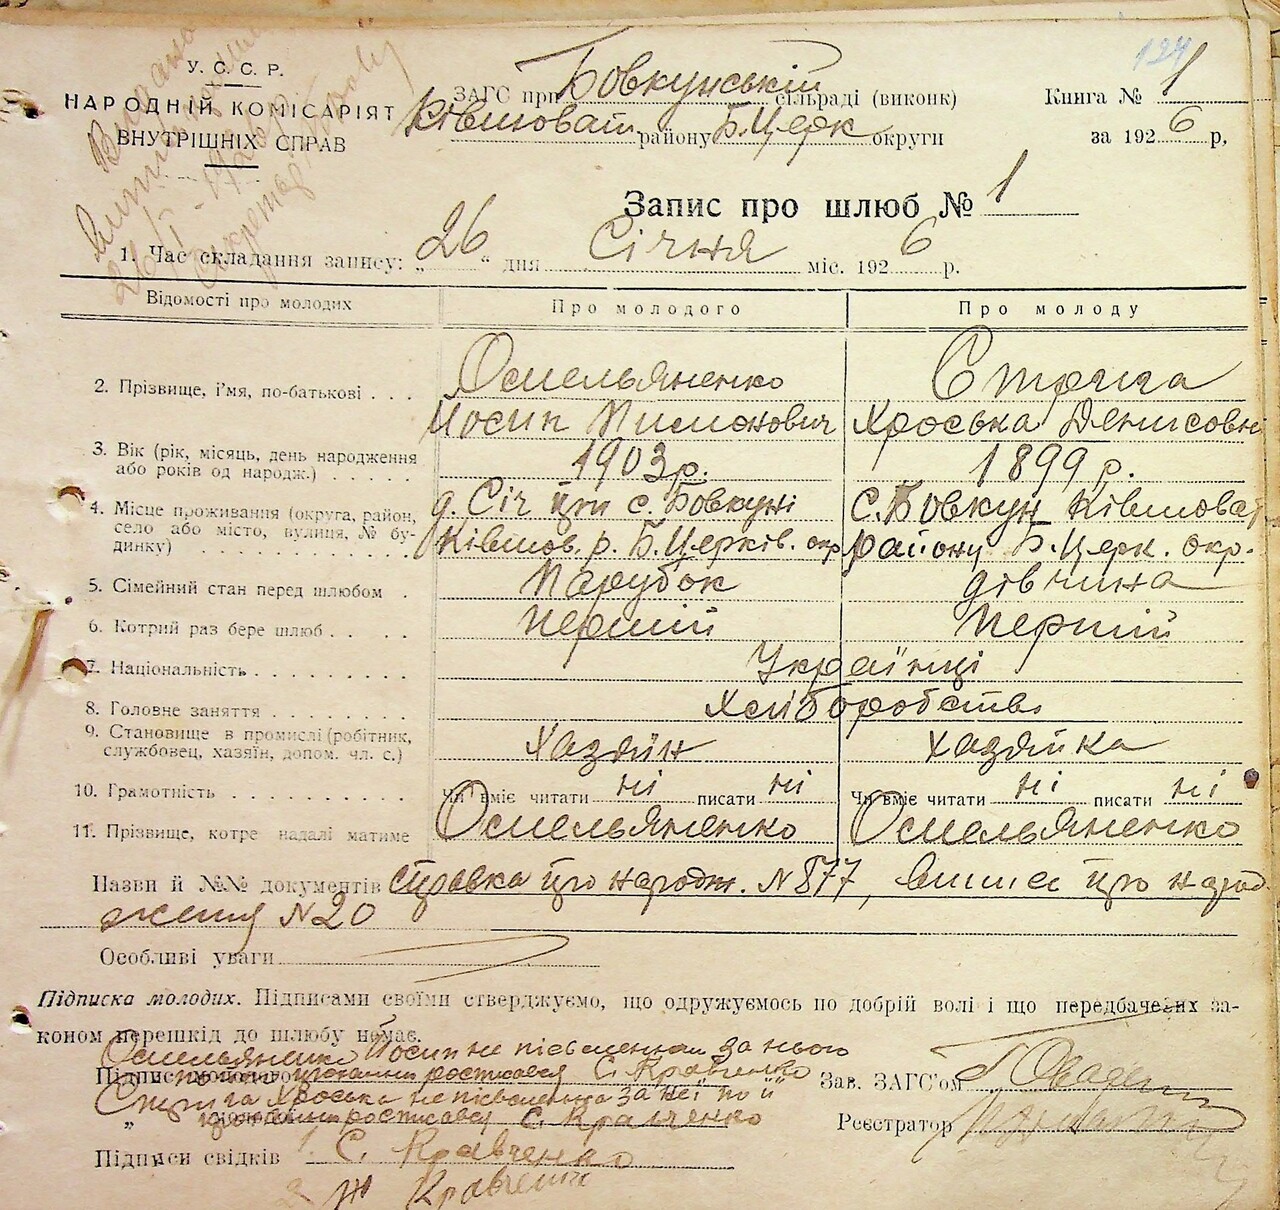 124
У. С. С. Р.
НАРОДНІЙ КОМІСАРІЯТ
ВНУТРІШНІХ СПРАВ
ЗАГС при Бовкунській сільраді (виконк)
Ківшоват. району Б. Церк округи
Книга № 1
за 1926 р,
Запис про шлюб № 1
1. Час складання запису: „26" дня Січня міс. 1926 р.
Відомості про молодих Про молодого Про молоду
2. Прізвище, і'мя, по-батькові . . . Омельяненко Стрига
Йосип Пимонович Хроська Денисовн
3. Вік (рік, місяць, день народження або років од народж.) 1903 р. 1899 р.
4. Місце проживання (округа, район, село або місто, вулиця, № будинку) д. Січ при с. Бовкуні с. Бовкун Ківшоват
Ківшов. р. Б. Церків. окр району Б. Церк. окр.
5. Сімейний стан перед шлюбом . Парубок дівчина
6. Котрий раз бере шлюб . . . . Перший Перший
7. Національність Українці
8. Головне заняття Хліборобство
9. Становище в промислі (робітник, службовец, хазяїн, допом. чл. с.) Хазяїн Хазяйка
10. Грамотність Чи вміє читати ні писати ні Чи вміє читати ні писати ні
11. Прізвище, котре надалі матиме Омельяненко Омельяненко
Назви й №№ документів справка про народж. N 877, выпис про народ
ження N 20
Особливі уваги
Підписка молодих. Підписами своїми стверджуємо, що одружуємось по добрій волі і що передбачених за-
коном перешкід до шлюбу немає.
Омельяненко Йосип не письменний за нього
Підпис молодого росписався С. Кравченко
Стрига Хроська не письменна за неї по її
„ росписався С. Кравченко
Зав. ЗАГС'ом
Реєстратор
Підписи свідків 1 С. Кравченко
2 Кравченко